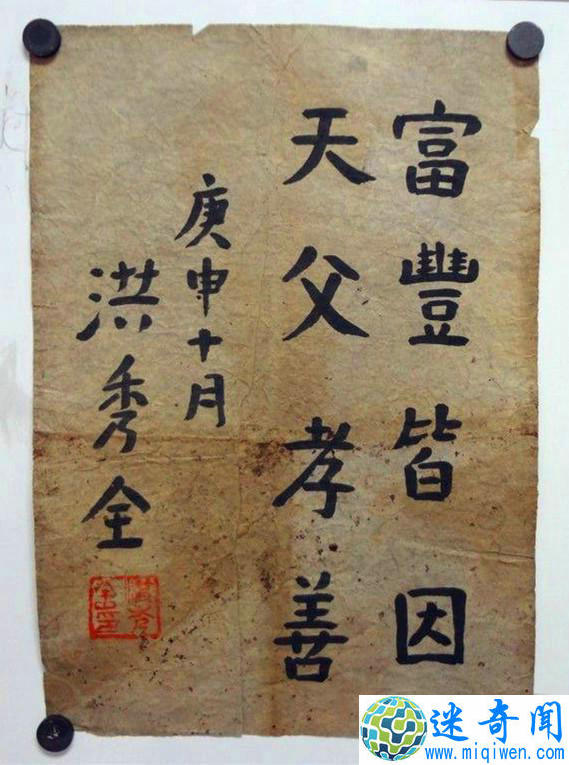 富豐皆因
天父孝善
庚申十月
洪秀全
洪秀
全印
迷奇闻
www.miqiwen.com